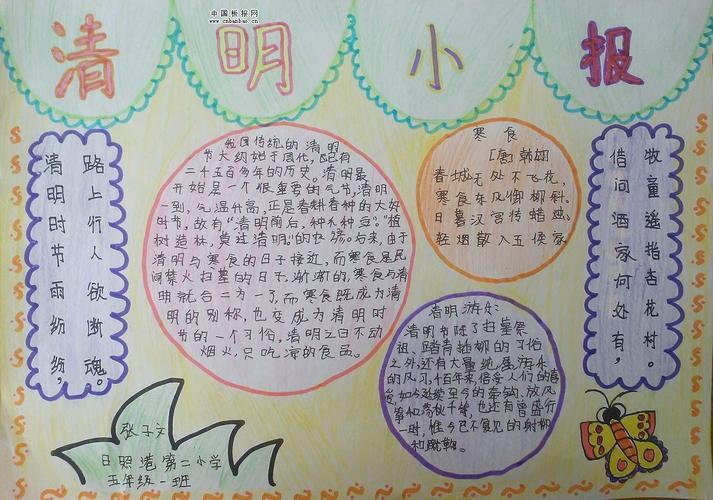 中国板报网
www.cnbanbao.cn
清明小报
清明时节雨纷纷，
路上行人欲断魂。
我国传统的清明
节大约始于周代，已有
二千五百多年的历史。清明最
开始是一个很重要的节气，清明
一到，气温升高，正是春耕春种的大好
时节，故有“清明前后，种瓜种豆”。“植
树造林，莫过清明。”的农谚。后来，由于
清明与寒食的日子接近，而寒食是民
间禁火扫墓的日子，渐渐的，寒食与清
明就合二为一了，而寒食既成为清
明的别称，也变成为清明时
节的一个习俗，清明之日不动
烟火，只吃凉的食品。
寒食
[唐]韩翃
春城无处不飞花，
寒食东风御柳斜。
日暮汉宫传蜡烛，
轻烟散入五侯家
清明游乐：
清明节除了扫墓祭
祖、踏青插柳的习俗
之外，还有大量
的风习，千百年来，倍受人们的喜
至今的牵钩，放风
筝和荡秋千等，也还有曾盛行
一时，惟今已不复见的射柳
和蹴鞠。
借问酒家何处有，
牧童遥指杏花村。
张子文
日照港第二小学
五年级一班